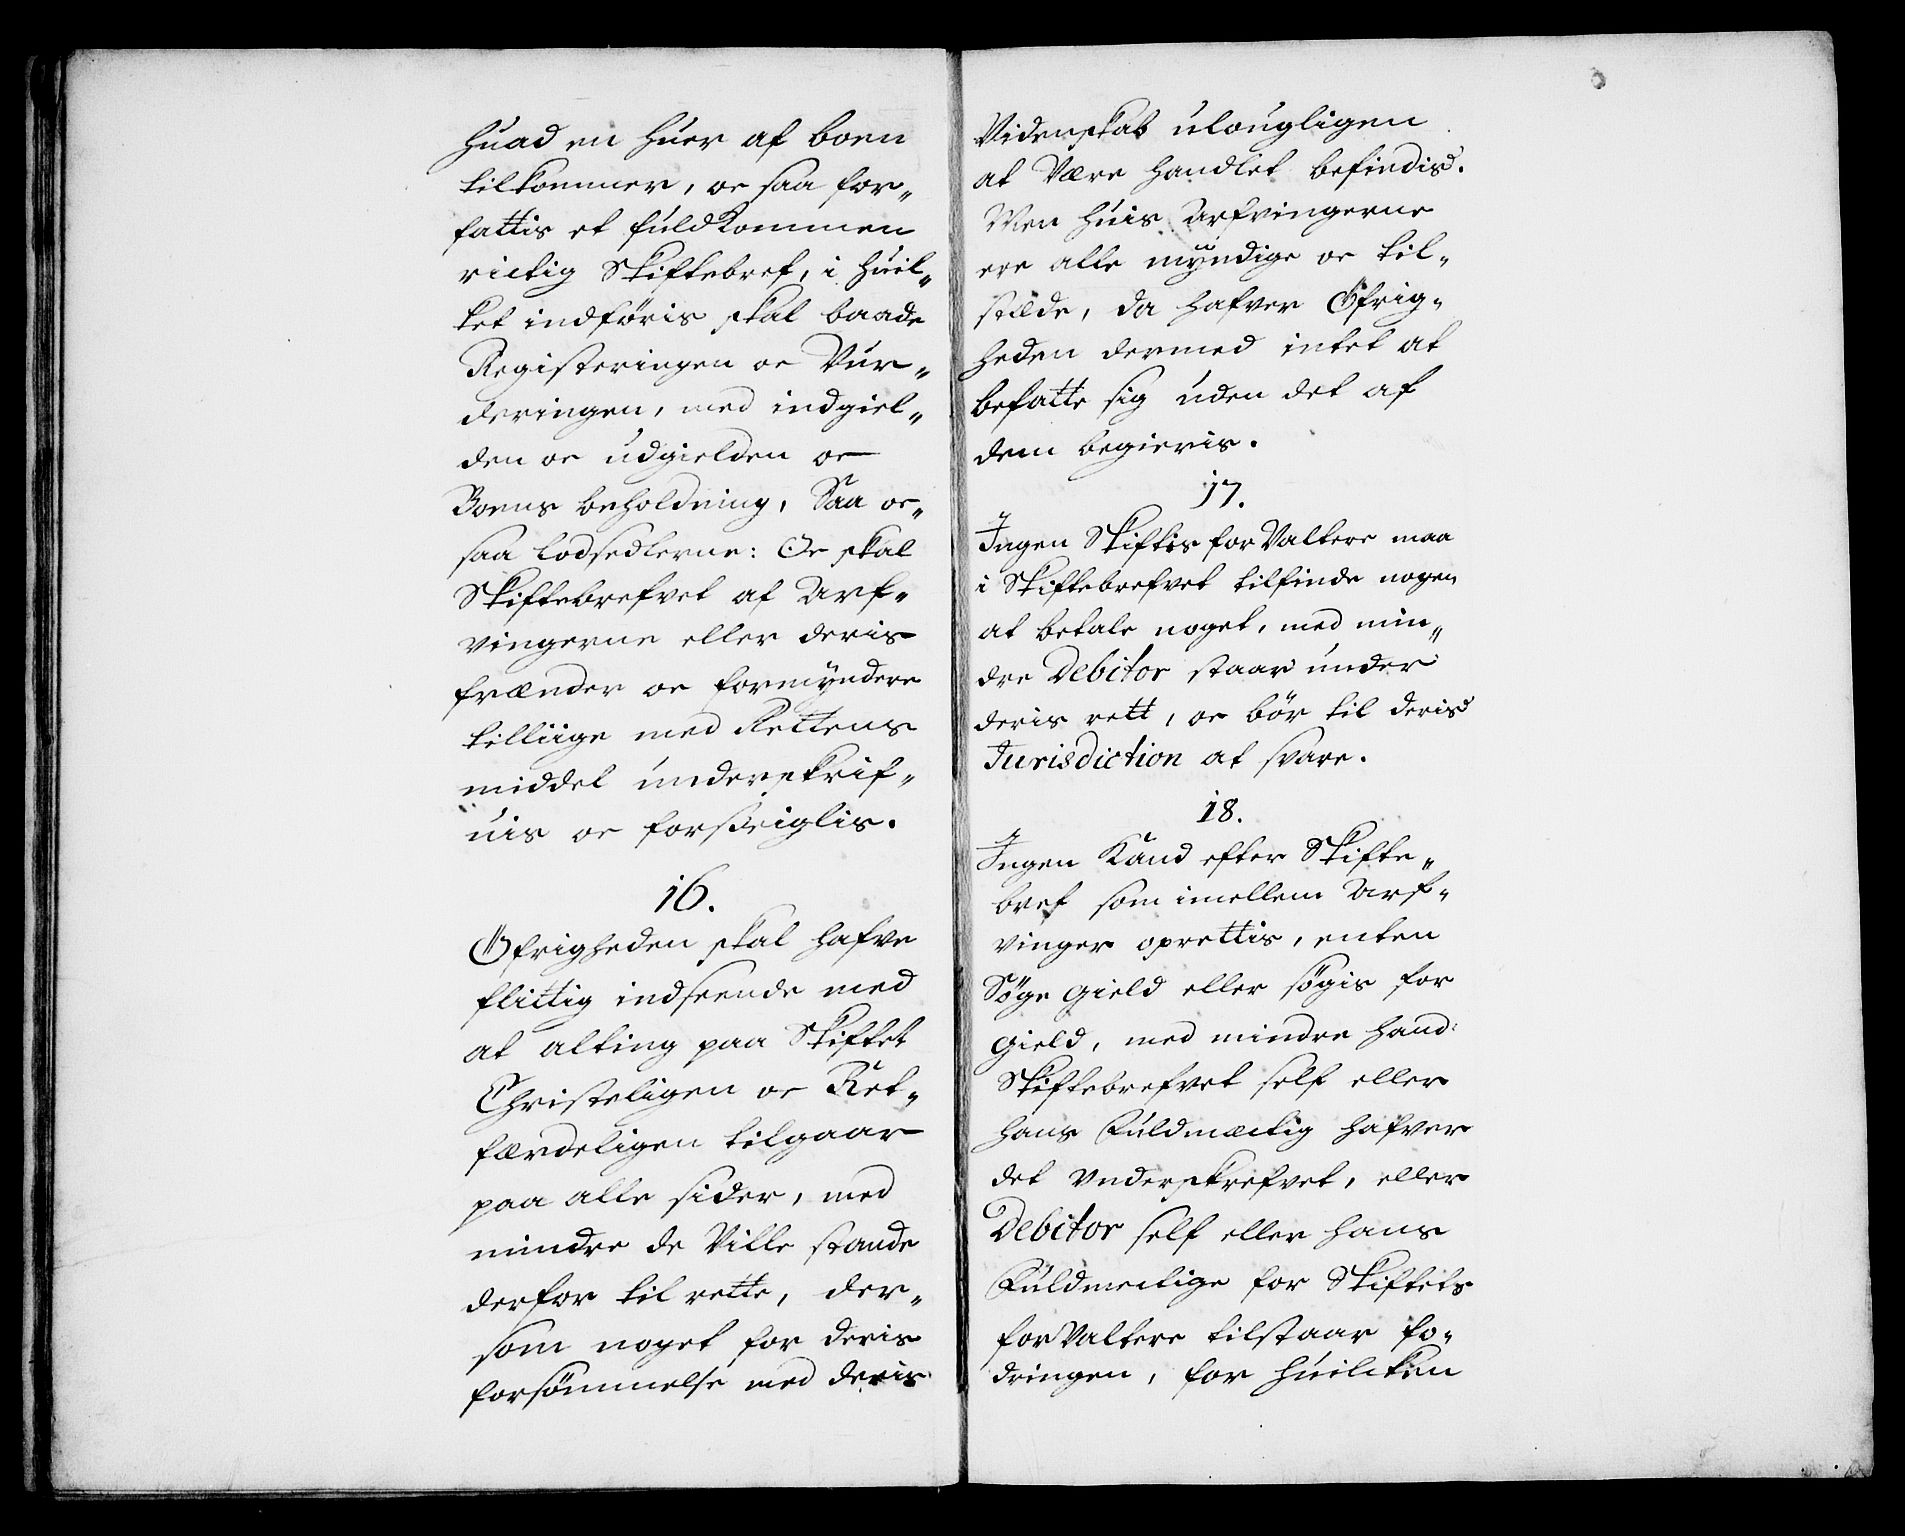 huad en huer af boen
tilkommer, oc saa for„
fattis et fuldkommen
rictig Skiftebref, i huil„
ket indføris skal baade
Registeringen oc Vur„
deringen, med indgiel„
den oc udgielden oc
Boens beholdning, Saa oc„
saa lodsedlerne: Oc skal
Skiftebrefvet af Arf„
vingerne eller deris
frænder oc formyndere
tilliige med Rettens
middel underskrif„
uis oc forseiglis.
16.
Øfrigheden skal hafve
flittig indseende med
at alting paa Skiftet
Christeligen oc Ret„
færdeligen tilgaar
paa alle sider, med
mindre de Ville stande
derfor til rette, der„
som noget for deris
forsømmelse med deris
Videnskab ulougligen
at Være handlet befindis.
Men huis Arfvingerne
ere alle myndige oc til„
stæde, da hafver Øfrig„
heden dermed intet at
befatte sig uden det af
dem begieris.
17.
Ingen Skiftis forValtere maa
i Skiftebrefvet tilfinde nogen
at betale noget, med min„
dre Debitor staar under
deris rett, oc bør til deris
Jurisdiction at svare.
18.
Ingen Kand efter Skifte„
bref som imellem Arf„
vinger oprettis, enten
Søge gield eller søgis for
gield, med mindre hand
Skiftebrefvet self eller
hans Fuldmæctig hafver
det Underskrefvet, eller
Debitor self eller hans
Fuldmectige for Skiftets
forValtere tilstaar fo„
dringen, for huilcken